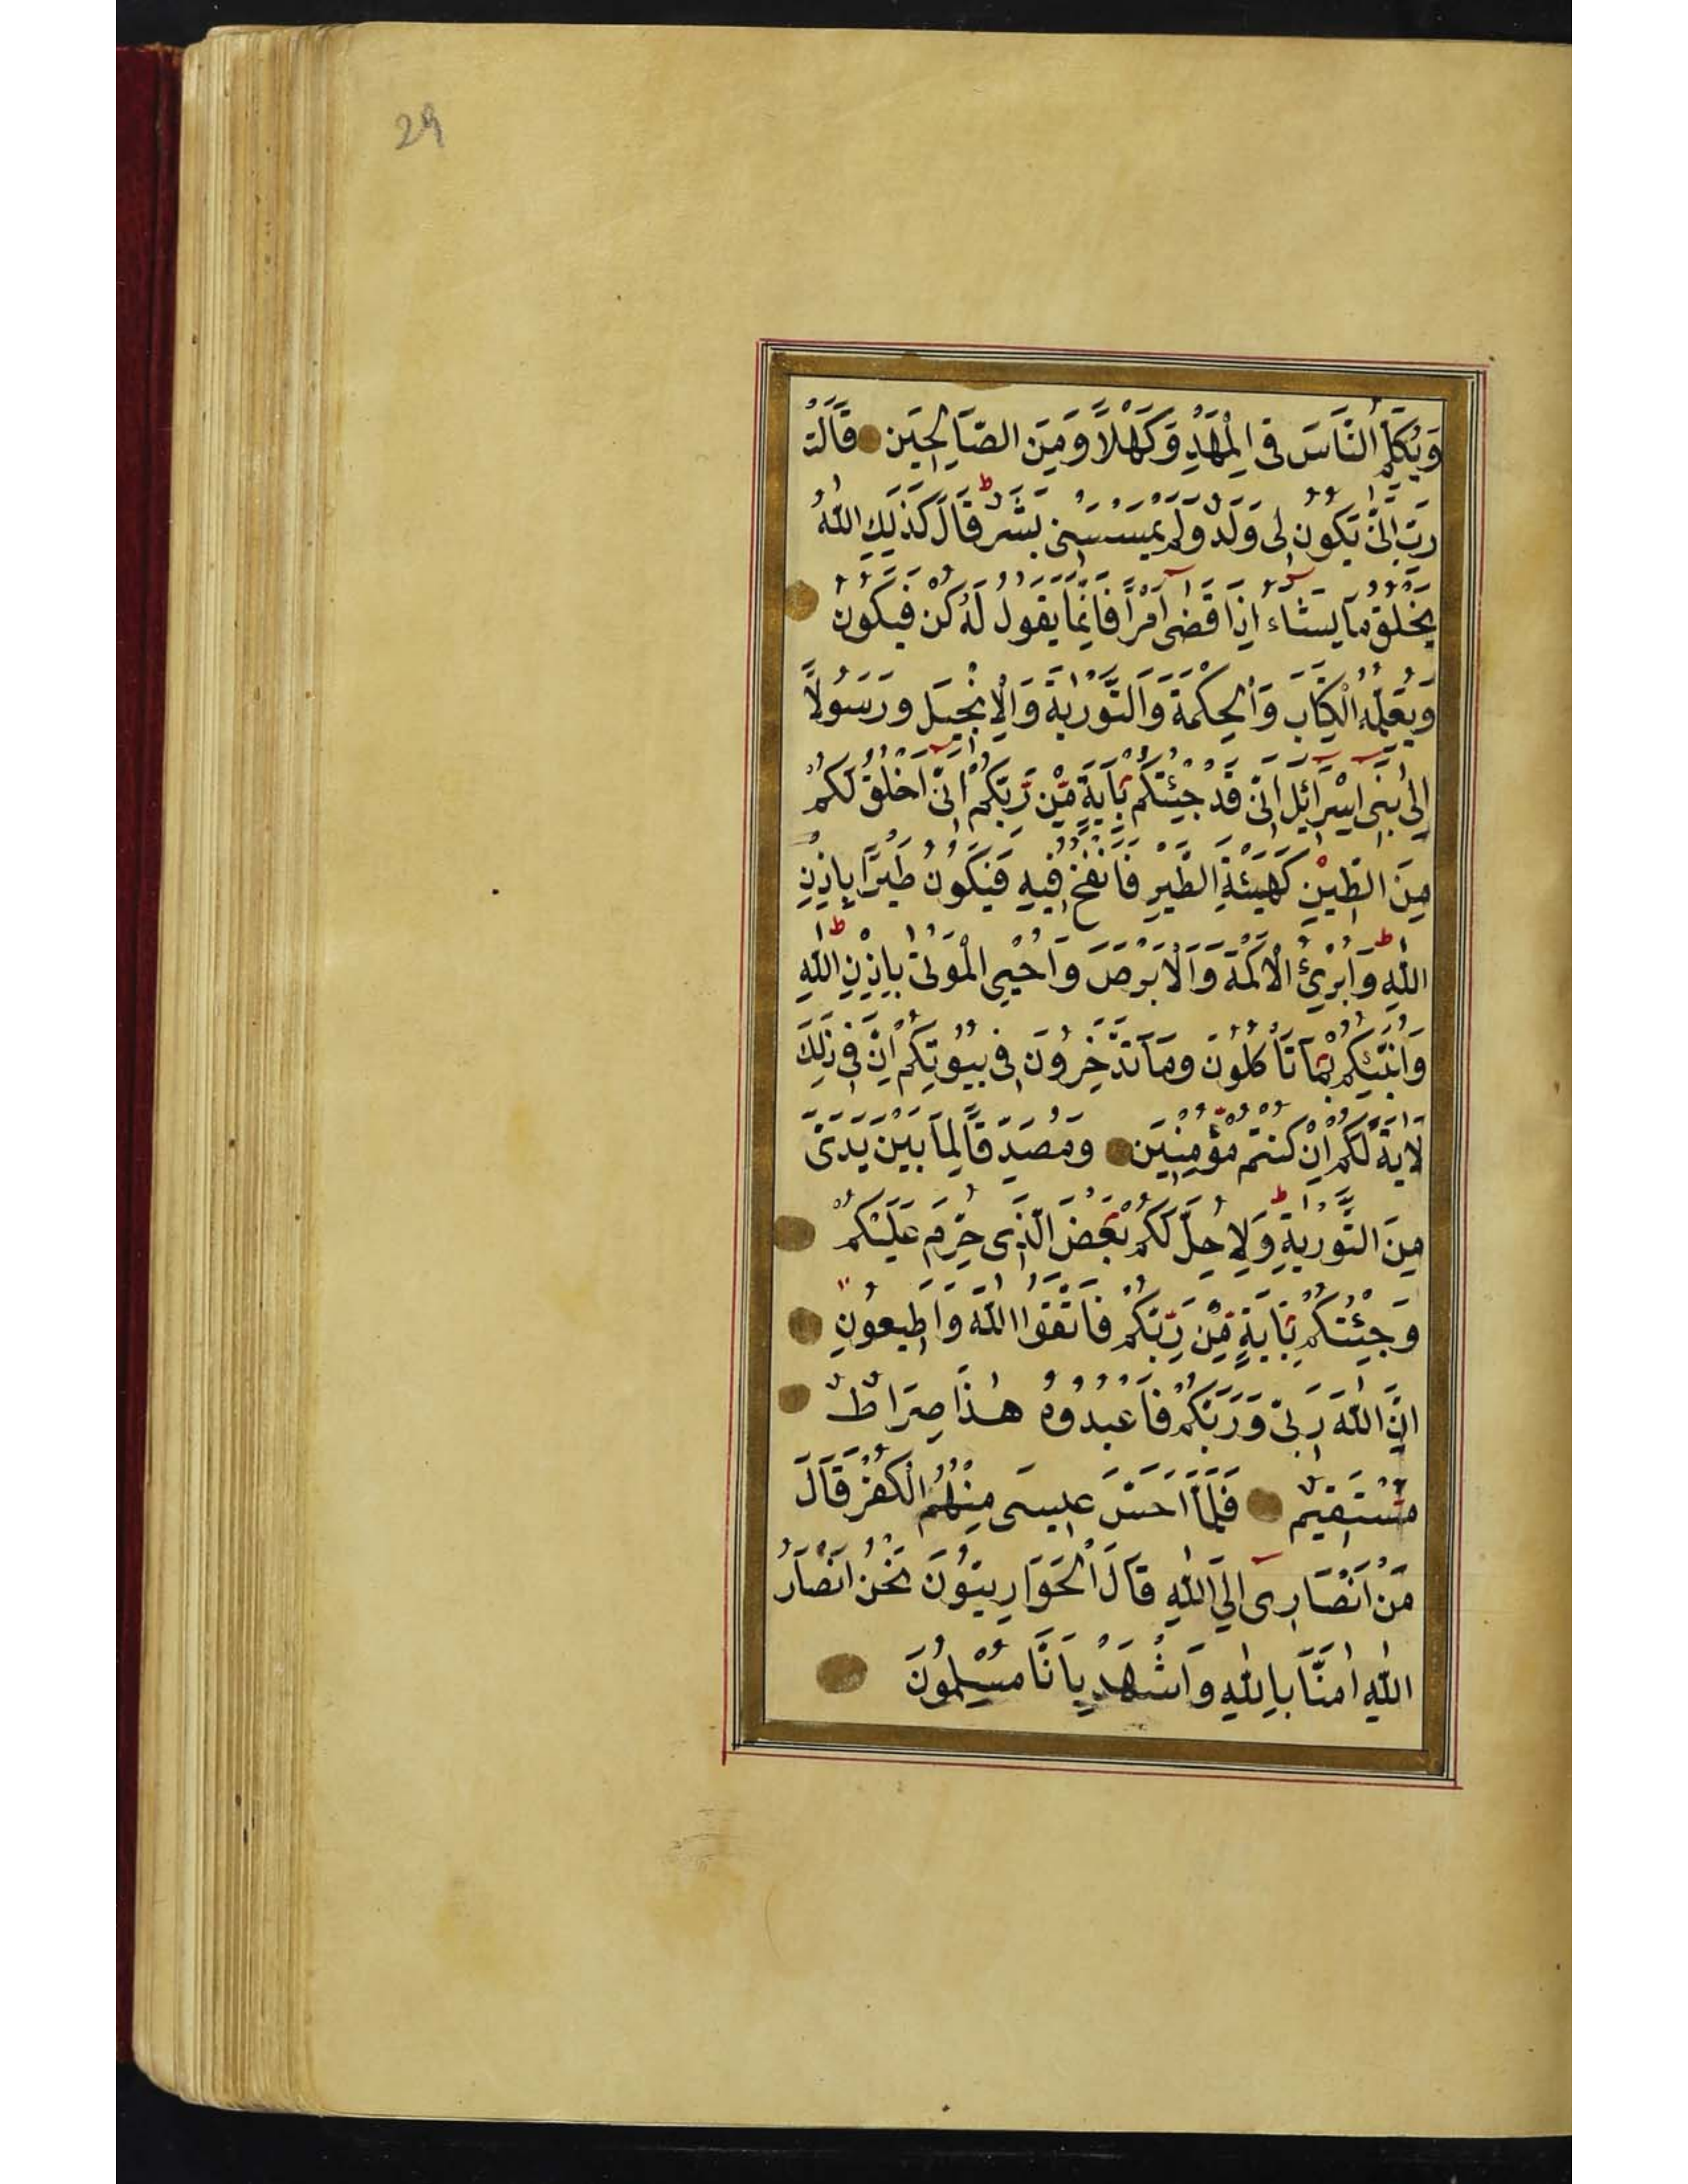 29
وَيُكَلِّمُ النَّاسَ فِي الْمَهْدِ وَكَهْلًا وَمِنَ الصَّالِحِينَ قَالَتْ
رَبِّ اَنّٰى يَكُونُ لِى وَلَدٌ وَلَمْ يَمْسَسْنِى بَشَرٌ قَالَ كَذٰلِكِ اللّٰهُ
يَخْلُقُ مَا يَشَاءُ اِذَا قَضٰى اَمْرًا فَاِنَّمَا يَقُولُ لَهُ كُنْ فَيَكُونُ
وَيُعَلِّمُهُ الْكِتَابَ وَالْحِكْمَةَ وَالتَّوْرٰيةَ وَالْاِنْجِيلَ وَرَسُولًا
اِلٰى بَنِى اِسْرَائِلَ اَنِّى قَدْ جِئْتُكُمْ بِاٰيَةٍ مِّنْ رَبِّكُمْ اَنِّى اَخْلُقُ لَكُمْ
مِنَ الطِّيْنِ كَهَيْئَةِ الطَّيْرِ فَاَنْفُخُ فِيهِ فَيَكُونُ طَيْرًا بِاِذْنِ
اللّٰهِ وَاُبْرِئُ الْاَكْمَهَ وَالْاَبْرَصَ وَاُحْيِى الْمَوْتٰى بِاِذْنِ اللّٰهِ
وَاُنَبِّئُكُمْ بِمَا تَاْكُلُونَ وَمَا تَدَّخِرُونَ فِى بُيُوتِكُمْ اِنَّ فِى ذٰلِكَ
لَاٰيَةً لَكُمْ اِنْ كُنْتُمْ مُؤْمِنِيْنَ وَمُصَدِّقًا لِمَا بَيْنَ يَدَىَّ
مِنَ التَّوْرٰيةِ وَلِاُحِلَّ لَكُمْ بَعْضَ الَّذِى حُرِّمَ عَلَيْكُمْ
وَجِئْتُكُمْ بِاٰيَةٍ مِّنْ رَبِّكُمْ فَاتَّقُوا اللّٰهَ وَاَطِيعُونِ
اِنَّ اللّٰهَ رَبِّى وَرَبُّكُمْ فَاعْبُدُوهُ هٰذَا صِرَاطٌ
مُسْتَقِيمٌ فَلَمَّا اَحَسَّ عِيسٰى مِنْهُمُ الْكُفْرَ قَالَ
مَنْ اَنْصَارِى اِلَى اللّٰهِ قَالَ الْحَوَارِيُّونَ نَحْنُ اَنْصَارُ
اللّٰهِ اٰمَنَّا بِاللّٰهِ وَاشْهَدْ بِاَنَّا مُسْلِمُونَ